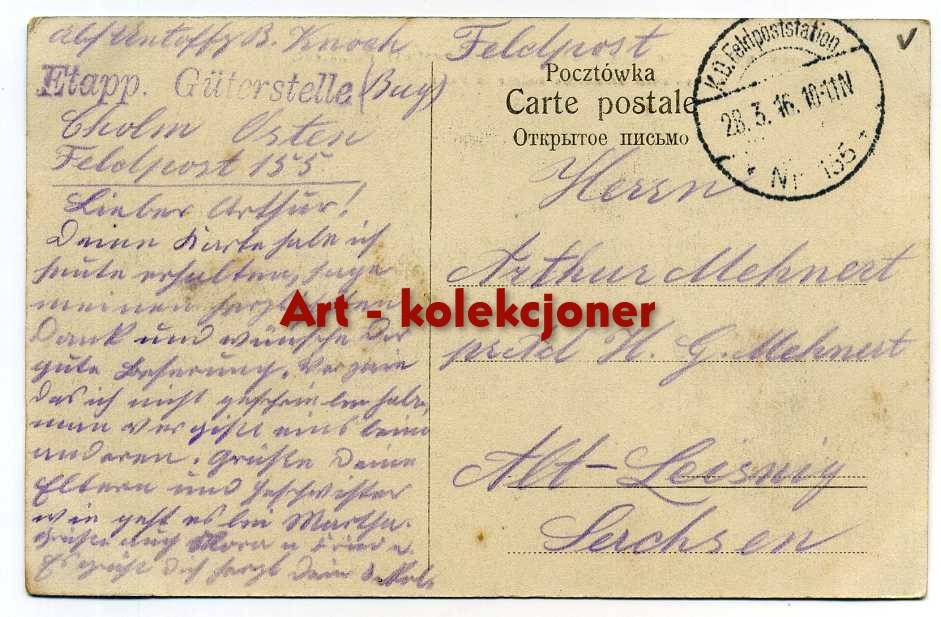 B. Knoch
Etapp. Güterstelle (Bug)
Cholm Osten
Feldpost 155
Lieber Arthur!
Deine Karte habe ich
heute erhalten, sage
meinen herzlichsten
Dank und wünsche Dir
gute Beserung. Verzeie
das ich nicht geschrieben habe,
man vergißt eins beim
anderen. Grüße Deine
Eltern und Geschwister
wie geht es bei Martha.
Grüße auch
Es grüßt Dich herzl. Dein
Feldpost
Pocztówka
Carte postale
Открытое письмо
K.D. Feldpoststation
28.3.16. 10-11N
* Nr 155 *
Herrn
Arthur Mehnert
H. G. Mehnert
Alt-Leisnig
Sachsen
Art - kolekcjoner